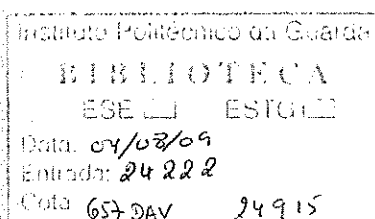 Instituto Politécnico da Guarda
BIBLIOTECA
ESE ESTG
Data: 04/03/09
Entrada: 24222
Cota 657 DAV 24915